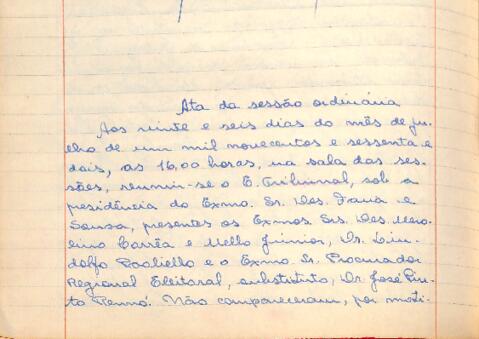 Ata da sessão ordinária
Aos vinte e seis dias do mês de ju-
lho de um mil novecentos e sessenta e
dois, as 16,00 horas, na sala das ses-
sões, reuniu-se o E. Tribunal, sob a
presidência do Exmo. Sr. Des. Faria e
Sousa, presentes os Exmos Srs. Des. Mero-
lino Corrêa e Mello Júnior, Dr. Lin-
dolfo Paoliello e o Exmo. Sr. Procurador
Regional Eleitoral, substituto, Dr. José Pin-
to Rennó. Não compareceram, por moti-